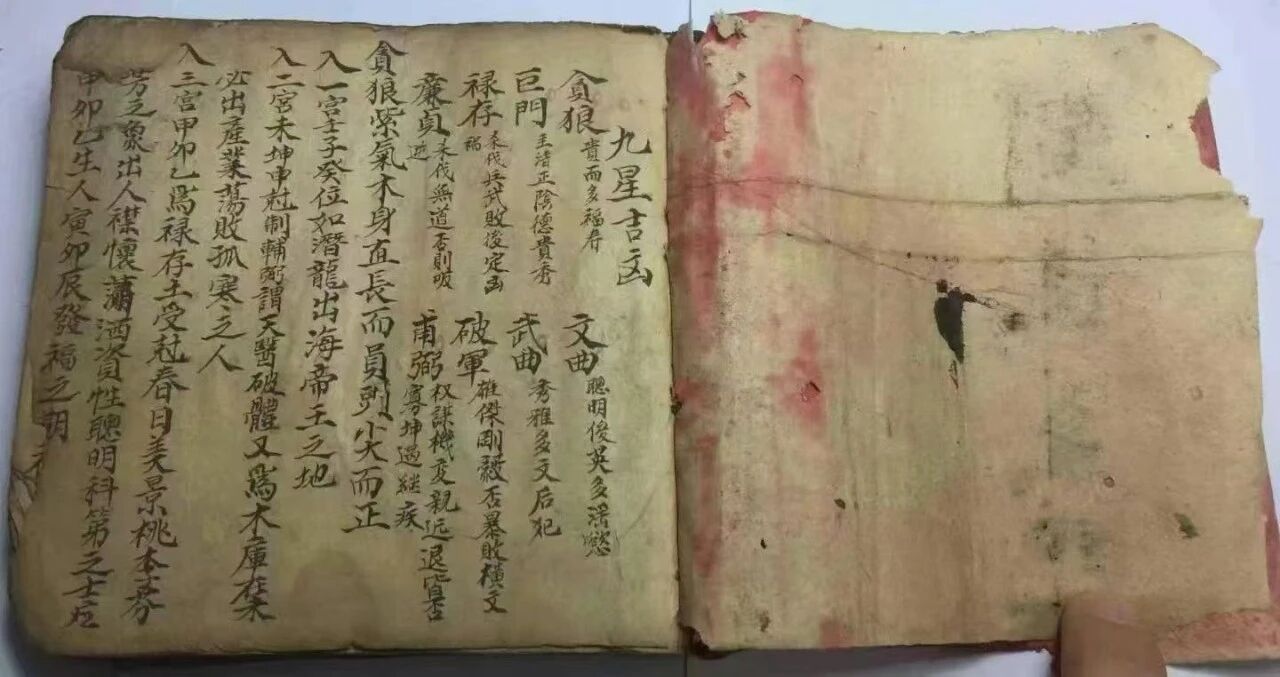 九星吉凶
貪狼 貴而多福寿 文曲 聰明俊英多淫慾
巨門 主清正陰德貴秀 武曲 秀雅多文后犯
禄存 禍 禾伐兵武敗後定凶 破軍 雄傑剛毅否暴敗横文
廉貞 逆 禾伐無道否則 甫弼 权謀機变親近退 否寡坤過継疾
貪狼紫氣木身直長而員则尖而正
入一宮壬子癸位如潛龍出海帝王之地
入二宮未坤申尅制輔弼謂天醫破體又爲木庫
必出産業荡敗孤寒之人
入三宮甲卯乙爲禄存土受尅春日美景桃本芬
芳之象出人襟懷瀟洒資性聰明科第之士
甲卯乙生人寅卯辰發福之期